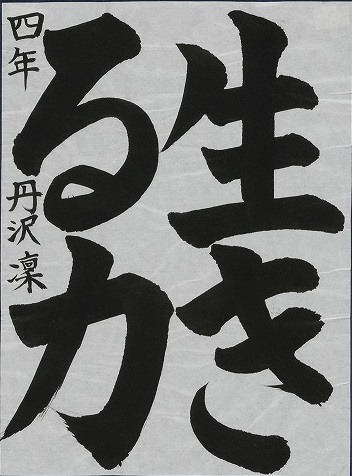 生き
る力
四年 丹沢凜